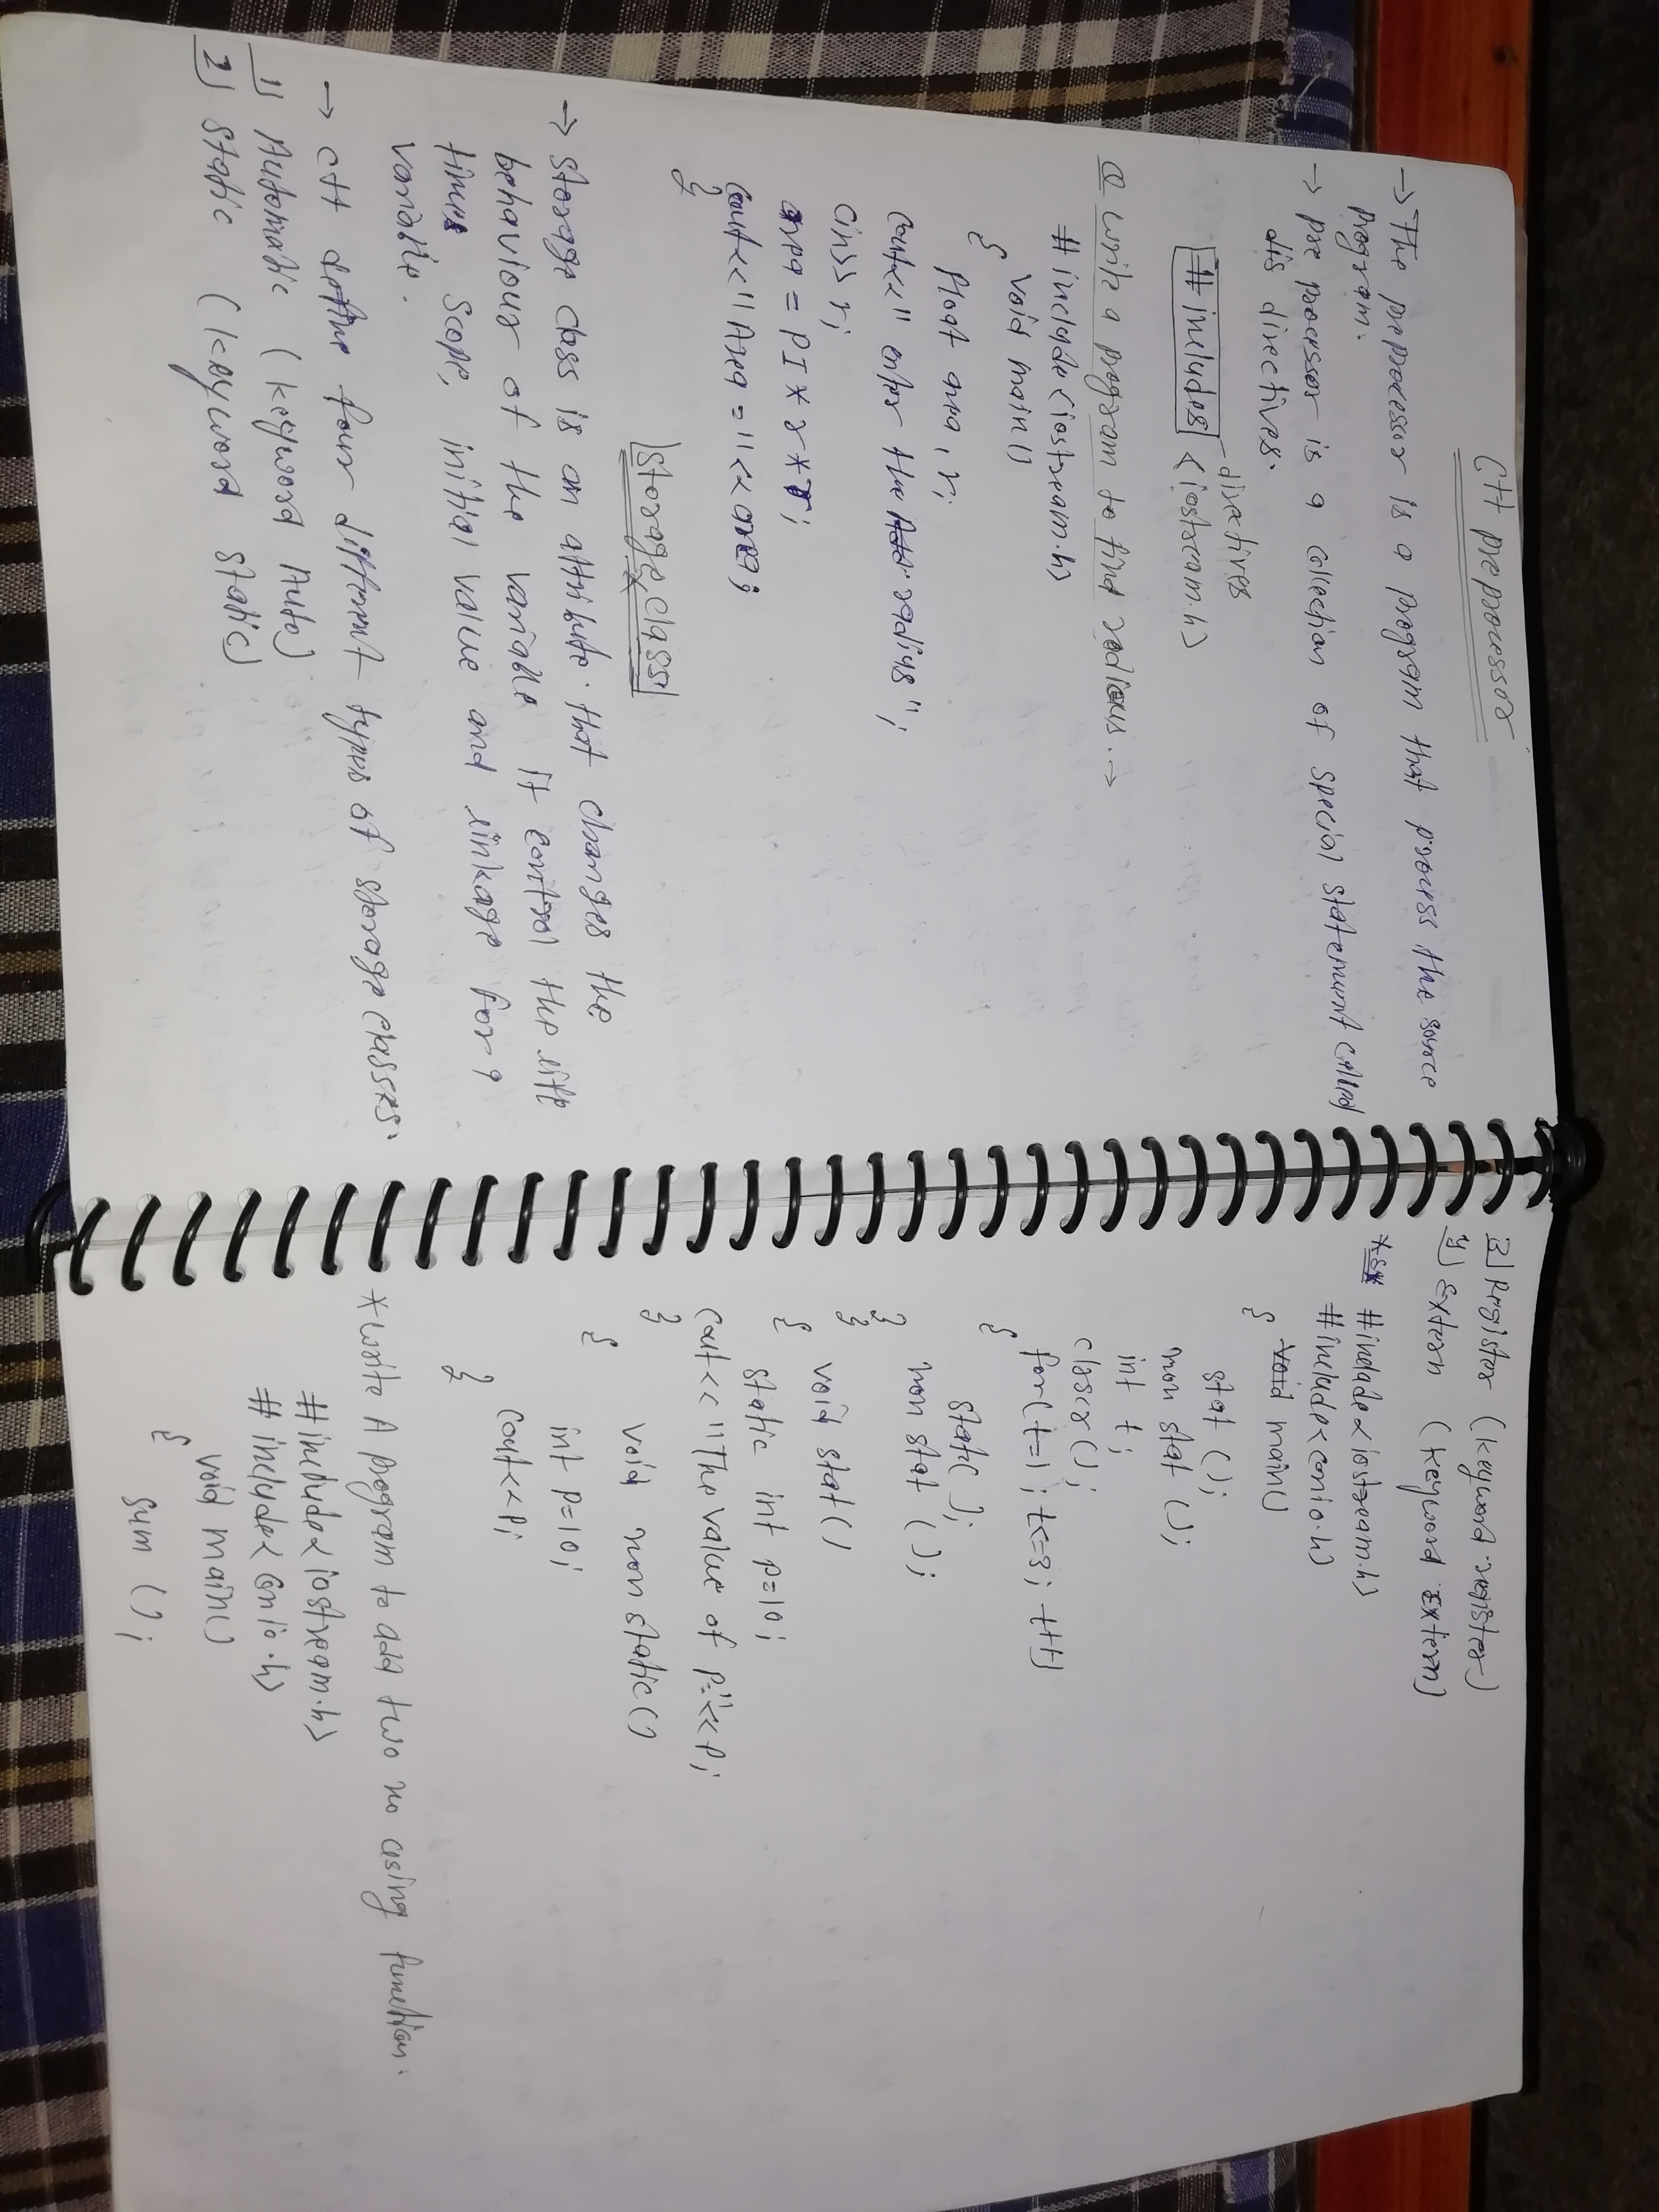 C++ preprocessor
→ The preprocessor is a program that process the source
program.
→ pre processor is a collection of special statement called
dis directives.
directives
#includes <iostream.h>
Q write a program to find radious. →
#include<iostream.h>
void main()
{
float area, r;
Cout<<" enter the radius";
Cin>>r;
area = PI * r * r;
Cout<<"Area = "<< area;
}
storage class
→ storage class is an attribute. that changes the
behavious of the variable it control the life
times scope, initial value and linkage for a
variable.
→ C++ define four different types of storage classes.
1) Automatic (keyword Auto)
2) Static (keyword static)
3) Register (keyword register)
4) Extern (keyword Extern)
#include<iostream.h>
#include<conio.h>
void main()
{
stat ();
non stat ();
int t;
clsscr();
for(t=1; t<=3; t++)
{
stat();
non stat ();
}
}
void stat()
{
static int p=10;
Cout<<"The value of p="<<p;
}
void non static()
{
int p=10;
Cout<<p;
}
* write A program to add two no using function.
#include<iostream.h>
#include<conio.h>
void main()
{
sum ();